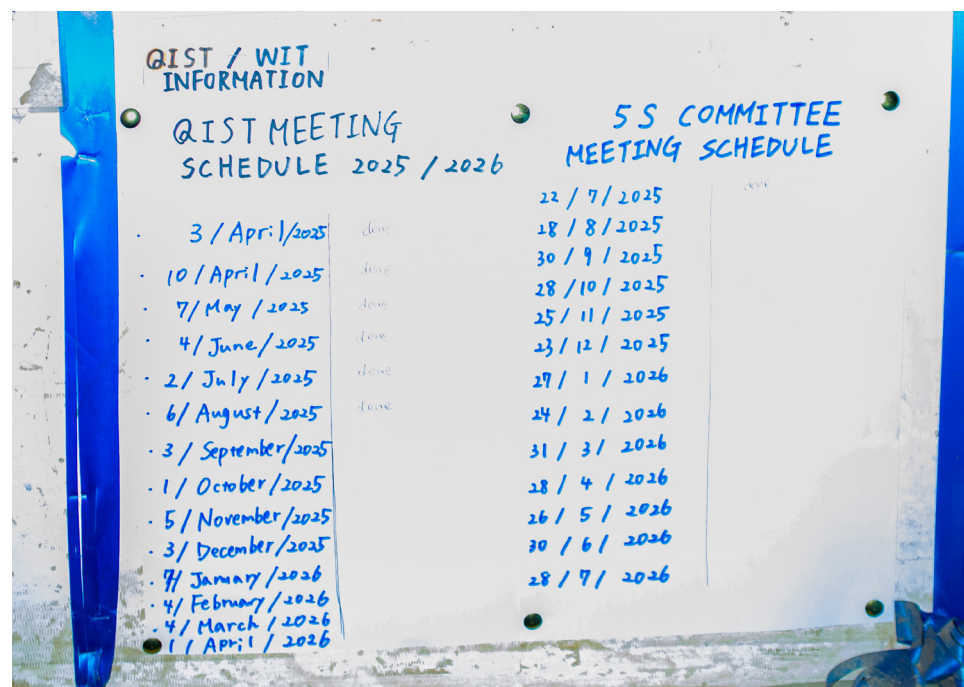 QIST / WIT
INFORMATION
QIST MEETING
SCHEDULE 2025 / 2026
· 3 / April / 2025 done
· 10 / April / 2025 done
· 7 / May / 2025 done
· 4 / June / 2025 done
· 2 / July / 2025 done
· 6 / August / 2025 done
· 3 / September / 2025
· 1 / October / 2025
· 5 / November / 2025
· 3 / December / 2025
· 7 / January / 2026
· 4 / February / 2026
· 4 / March / 2026
1 / April / 2026
5 S COMMITTEE
MEETING SCHEDULE
22 / 7 / 2025 done
18 / 8 / 2025
30 / 9 / 2025
28 / 10 / 2025
25 / 11 / 2025
23 / 12 / 2025
27 / 1 / 2026
24 / 2 / 2026
31 / 3 / 2026
28 / 4 / 2026
26 / 5 / 2026
30 / 6 / 2026
28 / 7 / 2026